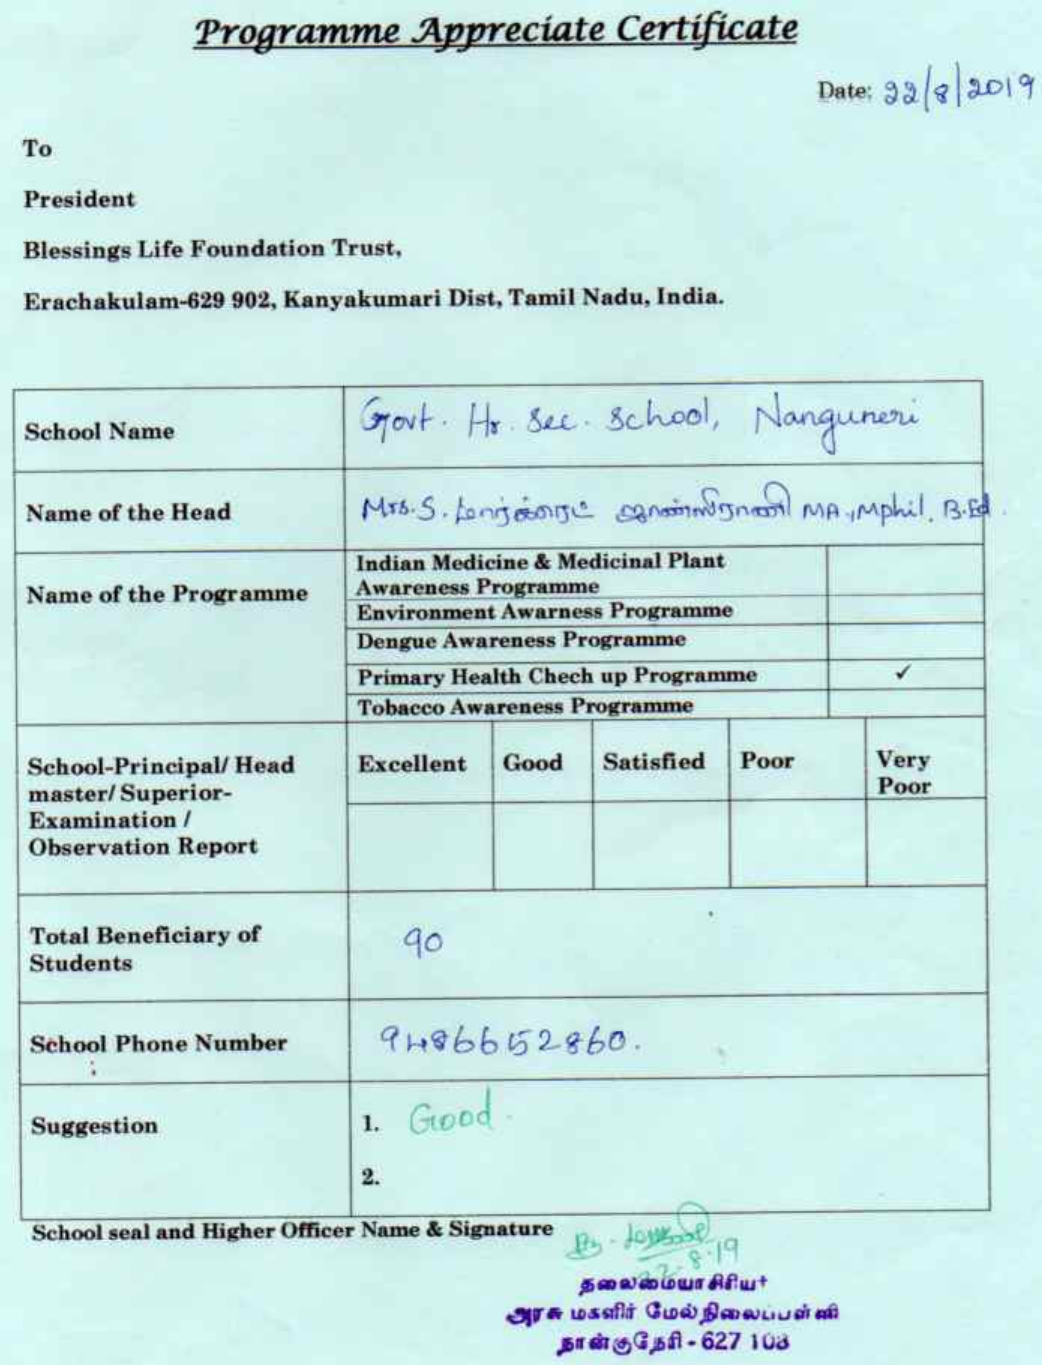 Programme Appreciate Certificate
Date: 22/8/2019
To
President
Blessings Life Foundation Trust,
Erachakulam-629 902, Kanyakumari Dist, Tamil Nadu, India.
School Name
Govt. Hr. Sec. School, Nanguneri
Name of the Head
Mrs. S. மார்க்ரெட் MA., Mphil, B.Ed.
Name of the Programme
Indian Medicine & Medicinal Plant
Awareness Programme
Environment Awarness Programme
Dengue Awareness Programme
Primary Health Chech up Programme ✓
Tobacco Awareness Programme
School-Principal/ Head
master/ Superior-
Examination /
Observation Report
Excellent Good Satisfied Poor Very
Poor
Total Beneficiary of
Students
90
School Phone Number
9486652860.
Suggestion
1. Good.
2.
School seal and Higher Officer Name & Signature
22.8.19
தலைமையாசிரியர்
அரசு மகளிர் மேல்நிலைப்பள்ளி
நான்குநேரி - 627 108